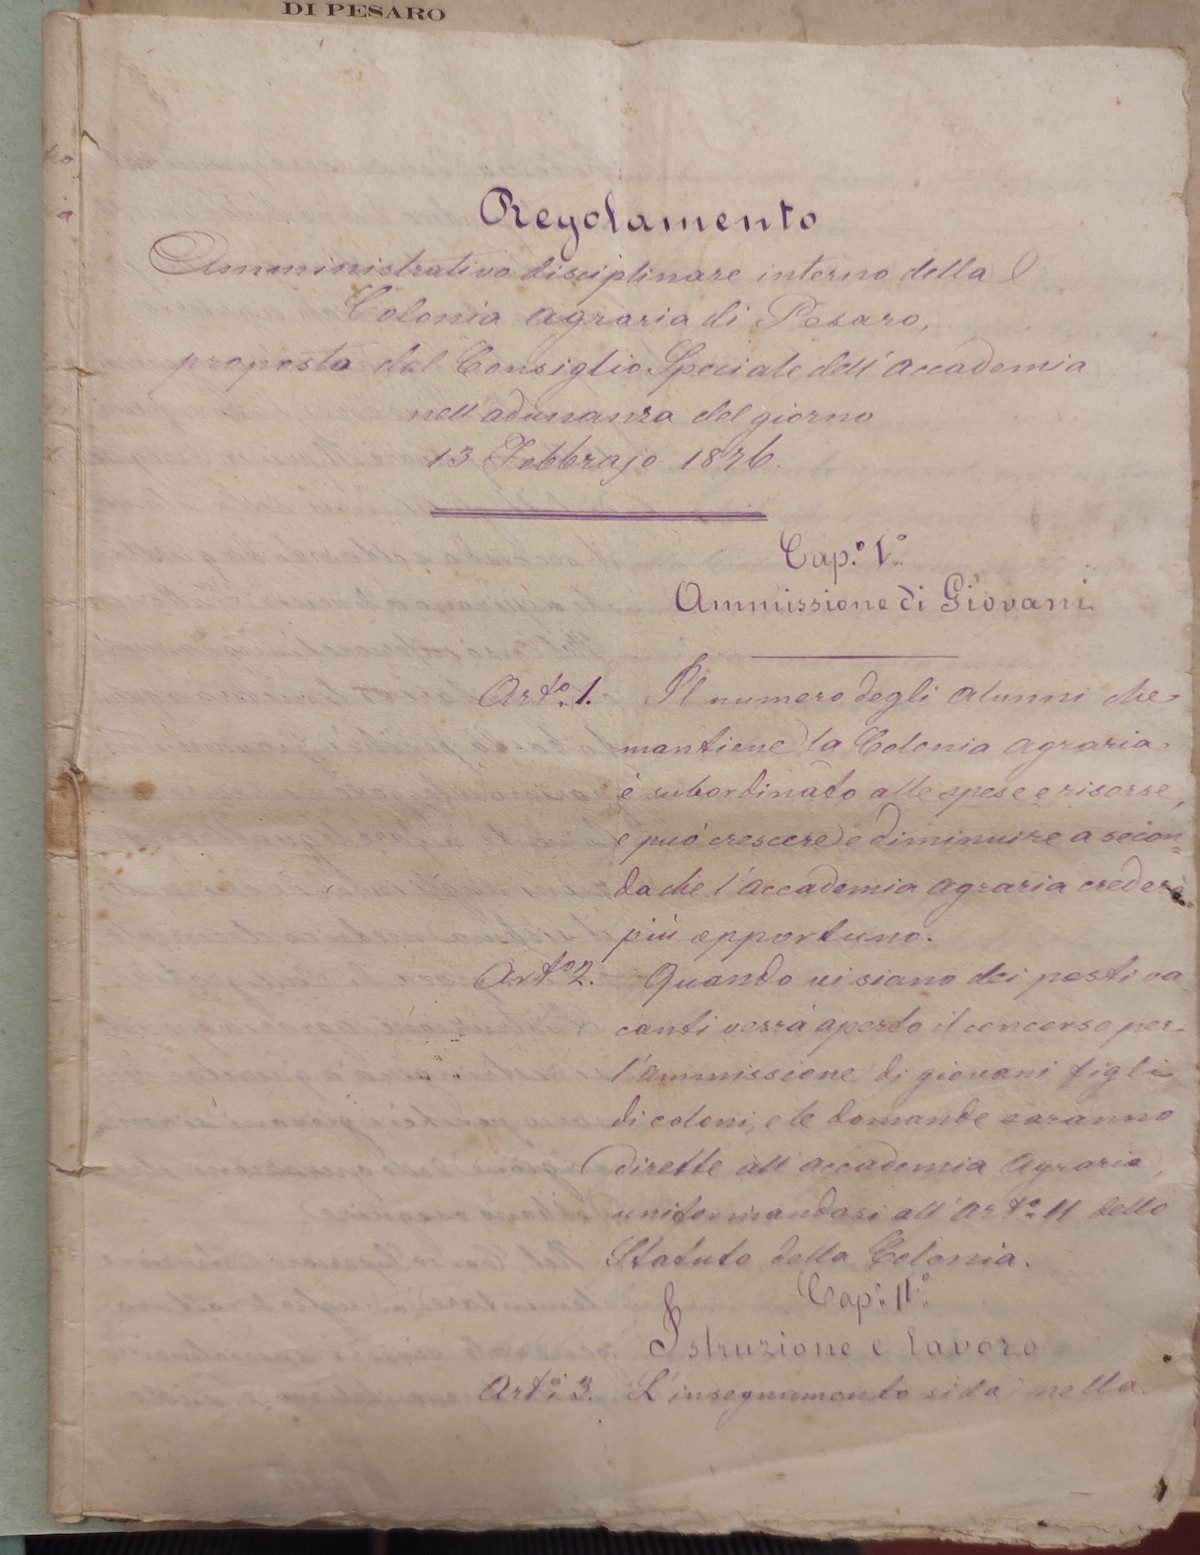 DI PESARO
Regolamento
Amministrativo disciplinare interno della
Colonia agraria di Pesaro,
proposto dal Consiglio Speciale dell'Accademia
nell'adunanza del giorno
13 Febbrajo 1876.
Cap.º I.º
Ammissione di Giovani
Art.º 1. Il numero degli alunni che
mantiene la Colonia agraria
è subordinato alle spese e risorse,
e può crescere e diminuire a secon=
da che l'Accademia agraria crederà
più opportuno.
Art.º 2. Quando vi siano dei posti va
canti verrà aperto il concorso per
l'ammissione di giovani figli
di coloni, e le domande saranno
dirette all'accademia Agraria,
uniformandosi all'Art.º 11 dello
Statuto della Colonia.
Cap.º II.º
Istruzione e lavoro
Art.º 3. L'insegnamento si da nella